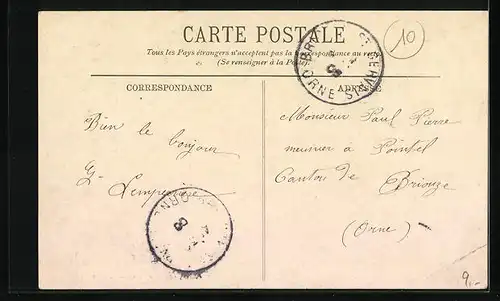 CARTE POSTALE
Tous les Pays étrangers n'acceptent pas la correspondance au recto
(Se renseigner à la Poste)
CORRESPONDANCE
ADRESSE
10
ORNE
Bien le bonjour
G.
Monsieur Paul Pierre
meunier à Pointel
Canton de Briouze
(Orne)
ORNE
9,-